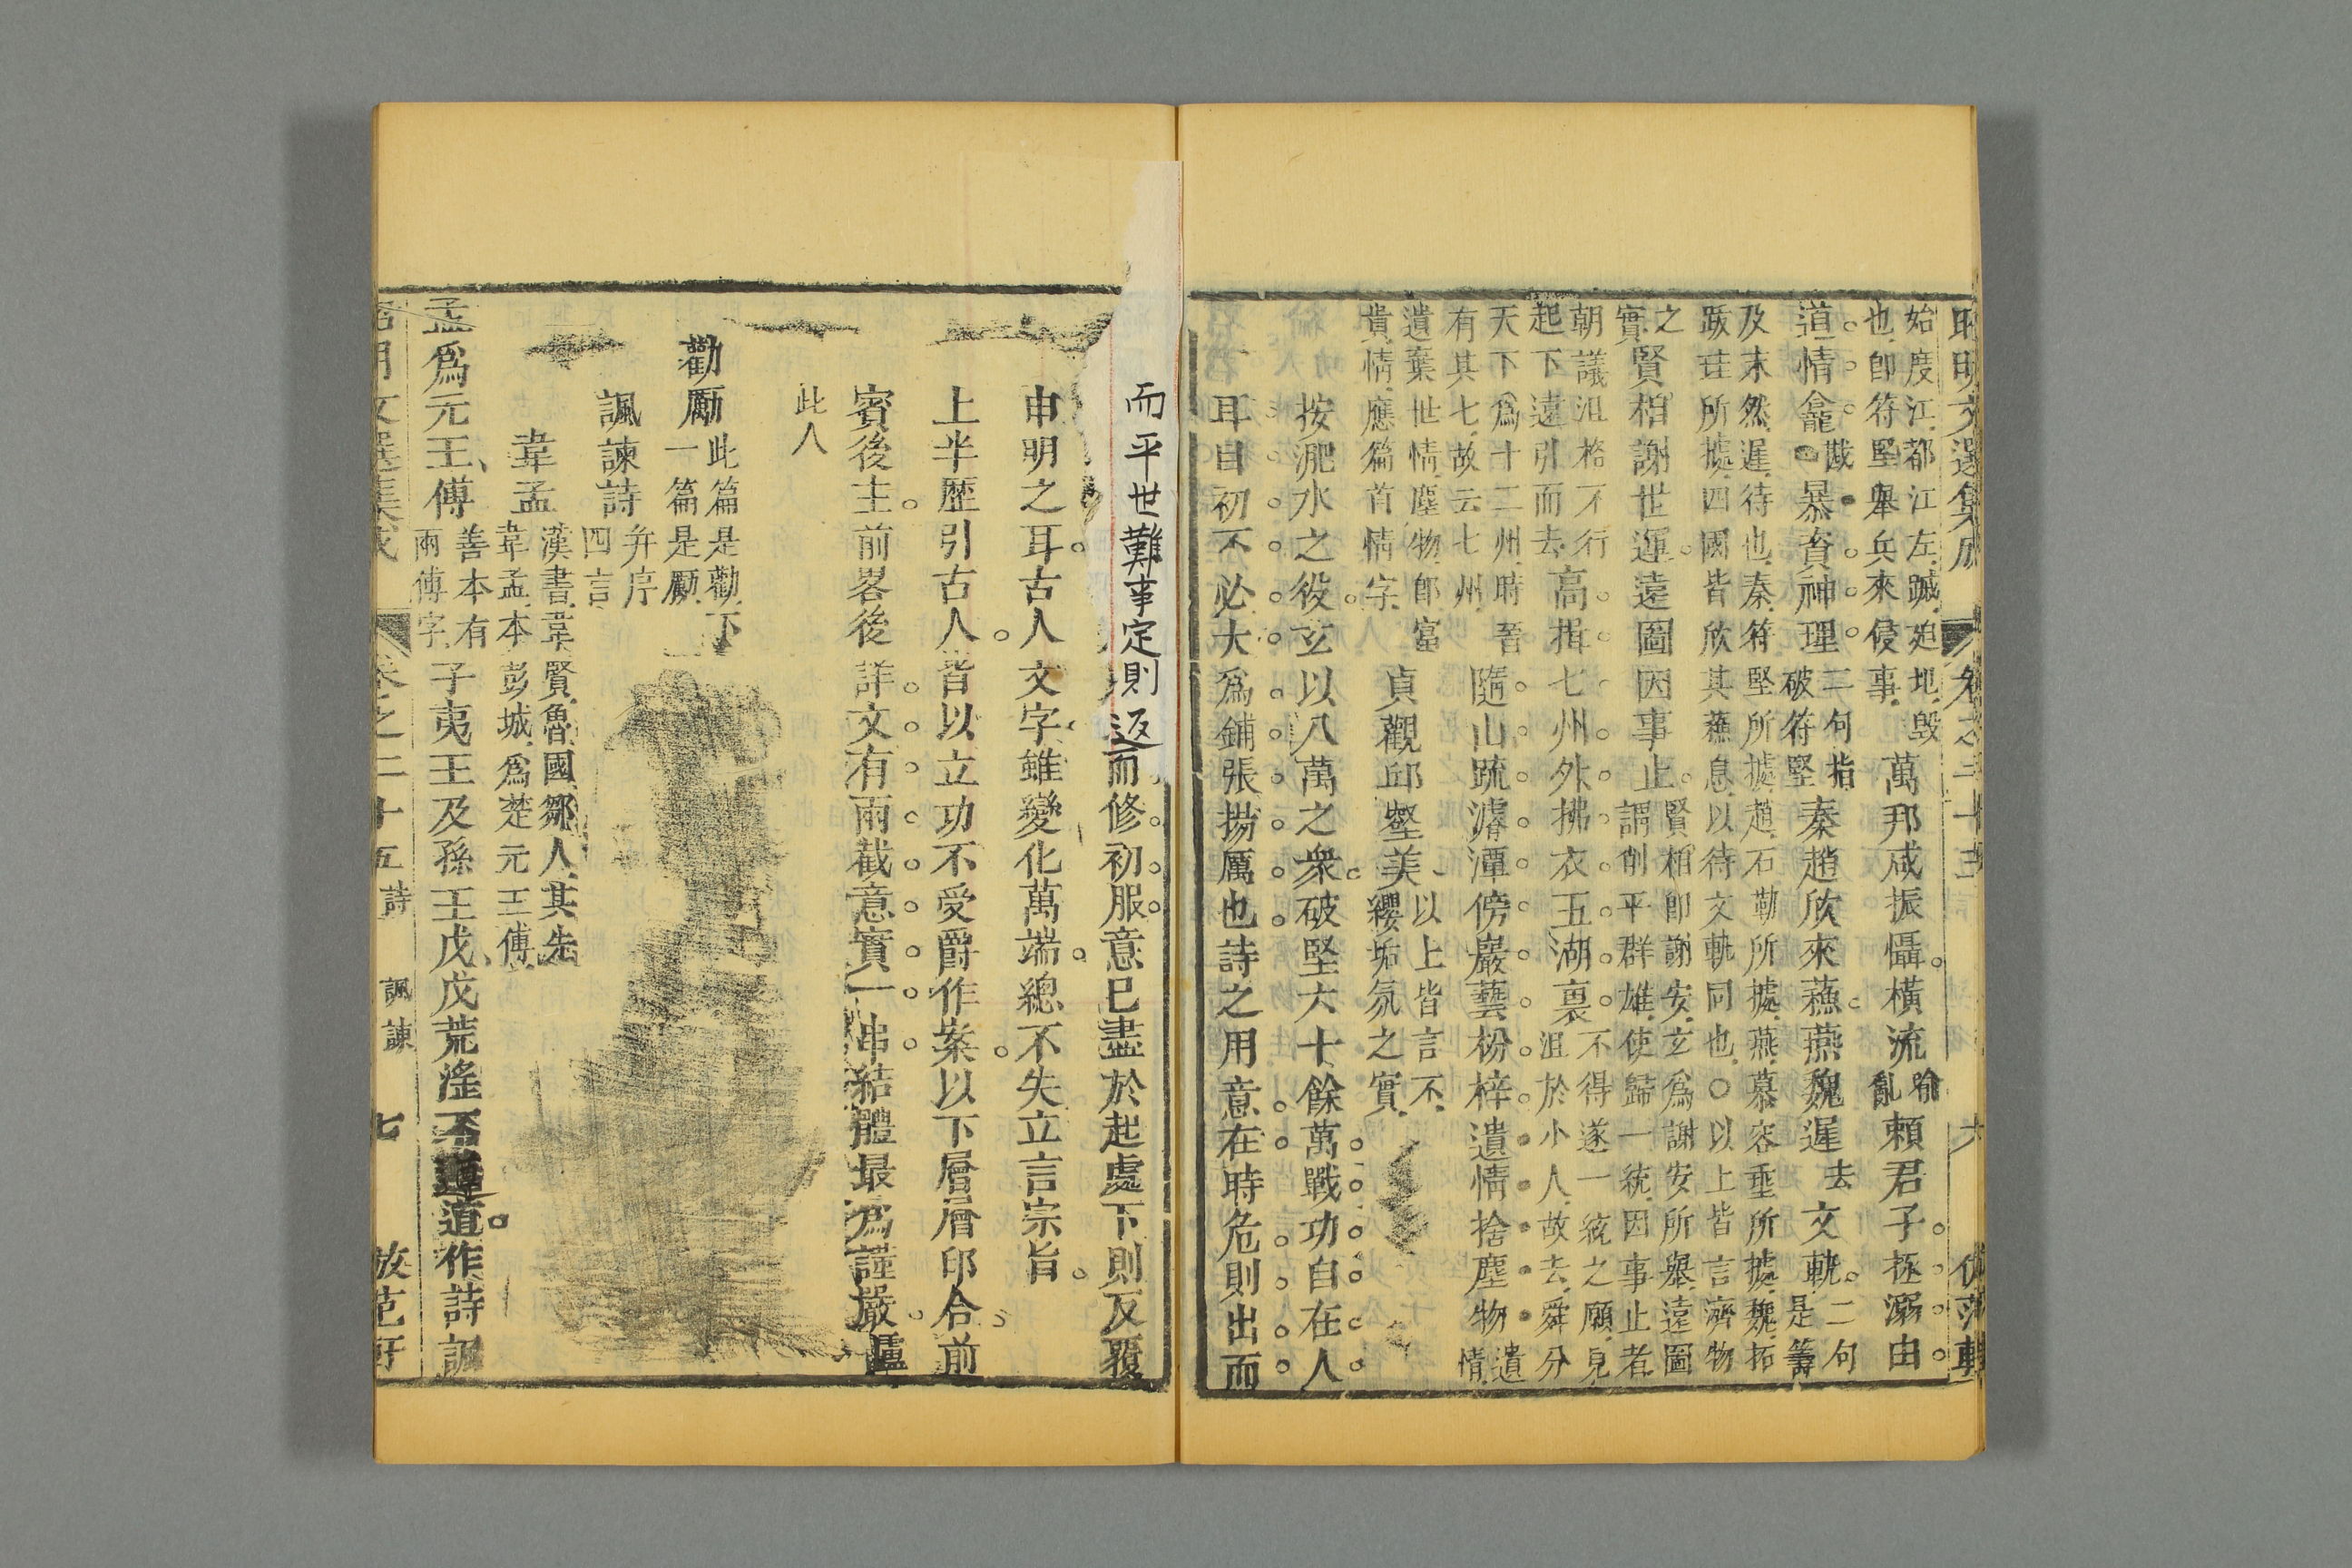 昭明文選集成 卷之二十三 六 倣范軒
始度江都江左蹙迫地毁
也卽符堅舉兵來侵事
萬邦咸振懾橫流
喻
亂
賴君子拯溺由
道情龕
戡
暴資神理
二句指
破符堅
秦趙欣來蘇燕魏遲
去
文軌
二句
是籌
及末然遲待也秦符堅所據趙石勒所據燕慕容垂所據魏拓
跋珪所據四國皆欣其蘇息以待文軌同也○以上皆言濟物
之
實
賢相謝世運遠圖因事止
賢相卽謝安玄爲謝安所舉遠圖
謂削平群雄使歸一統因事止者
朝議沮格不行
起下遠引而去
高揖七州外拂衣五湖裏
不得遂一統之願見
沮於小人故去舜分
天下爲十二州時晉
有其七故云七州
隨山疏濬潭傍巖藝枌梓遺情捨塵物
遺
情
遺棄世情塵物卽富
貴情應篇首情字
貞觀邱壑美
以上皆言不
纓垢氛之實
按淝水之役玄以八萬之衆破堅六十餘萬戰功自在人
耳目初不必大爲鋪張揚厲也詩之用意在時危則出而
而平世難事定則返而修初服意已盡於起處下則反覆
申明之耳古人文字雖變化萬端總不失立言宗旨
上半歷引古人皆以立功不受爵作案以下層層印合前
賓後主前畧後詳文有兩截意實一串結體最爲謹嚴
此人
勸厲
此篇是勸下
一篇是厲
諷諫詩
幷序
四言
韋孟
漢書韋賢魯國鄒人其先
韋孟本彭城爲楚元王傅
孟爲元王傅
善本有
兩傅字
子夷王及孫王戊戊荒淫不遵道作詩諷
昭明文選集成 卷之二十五 詩 諷諫 七 倣范軒